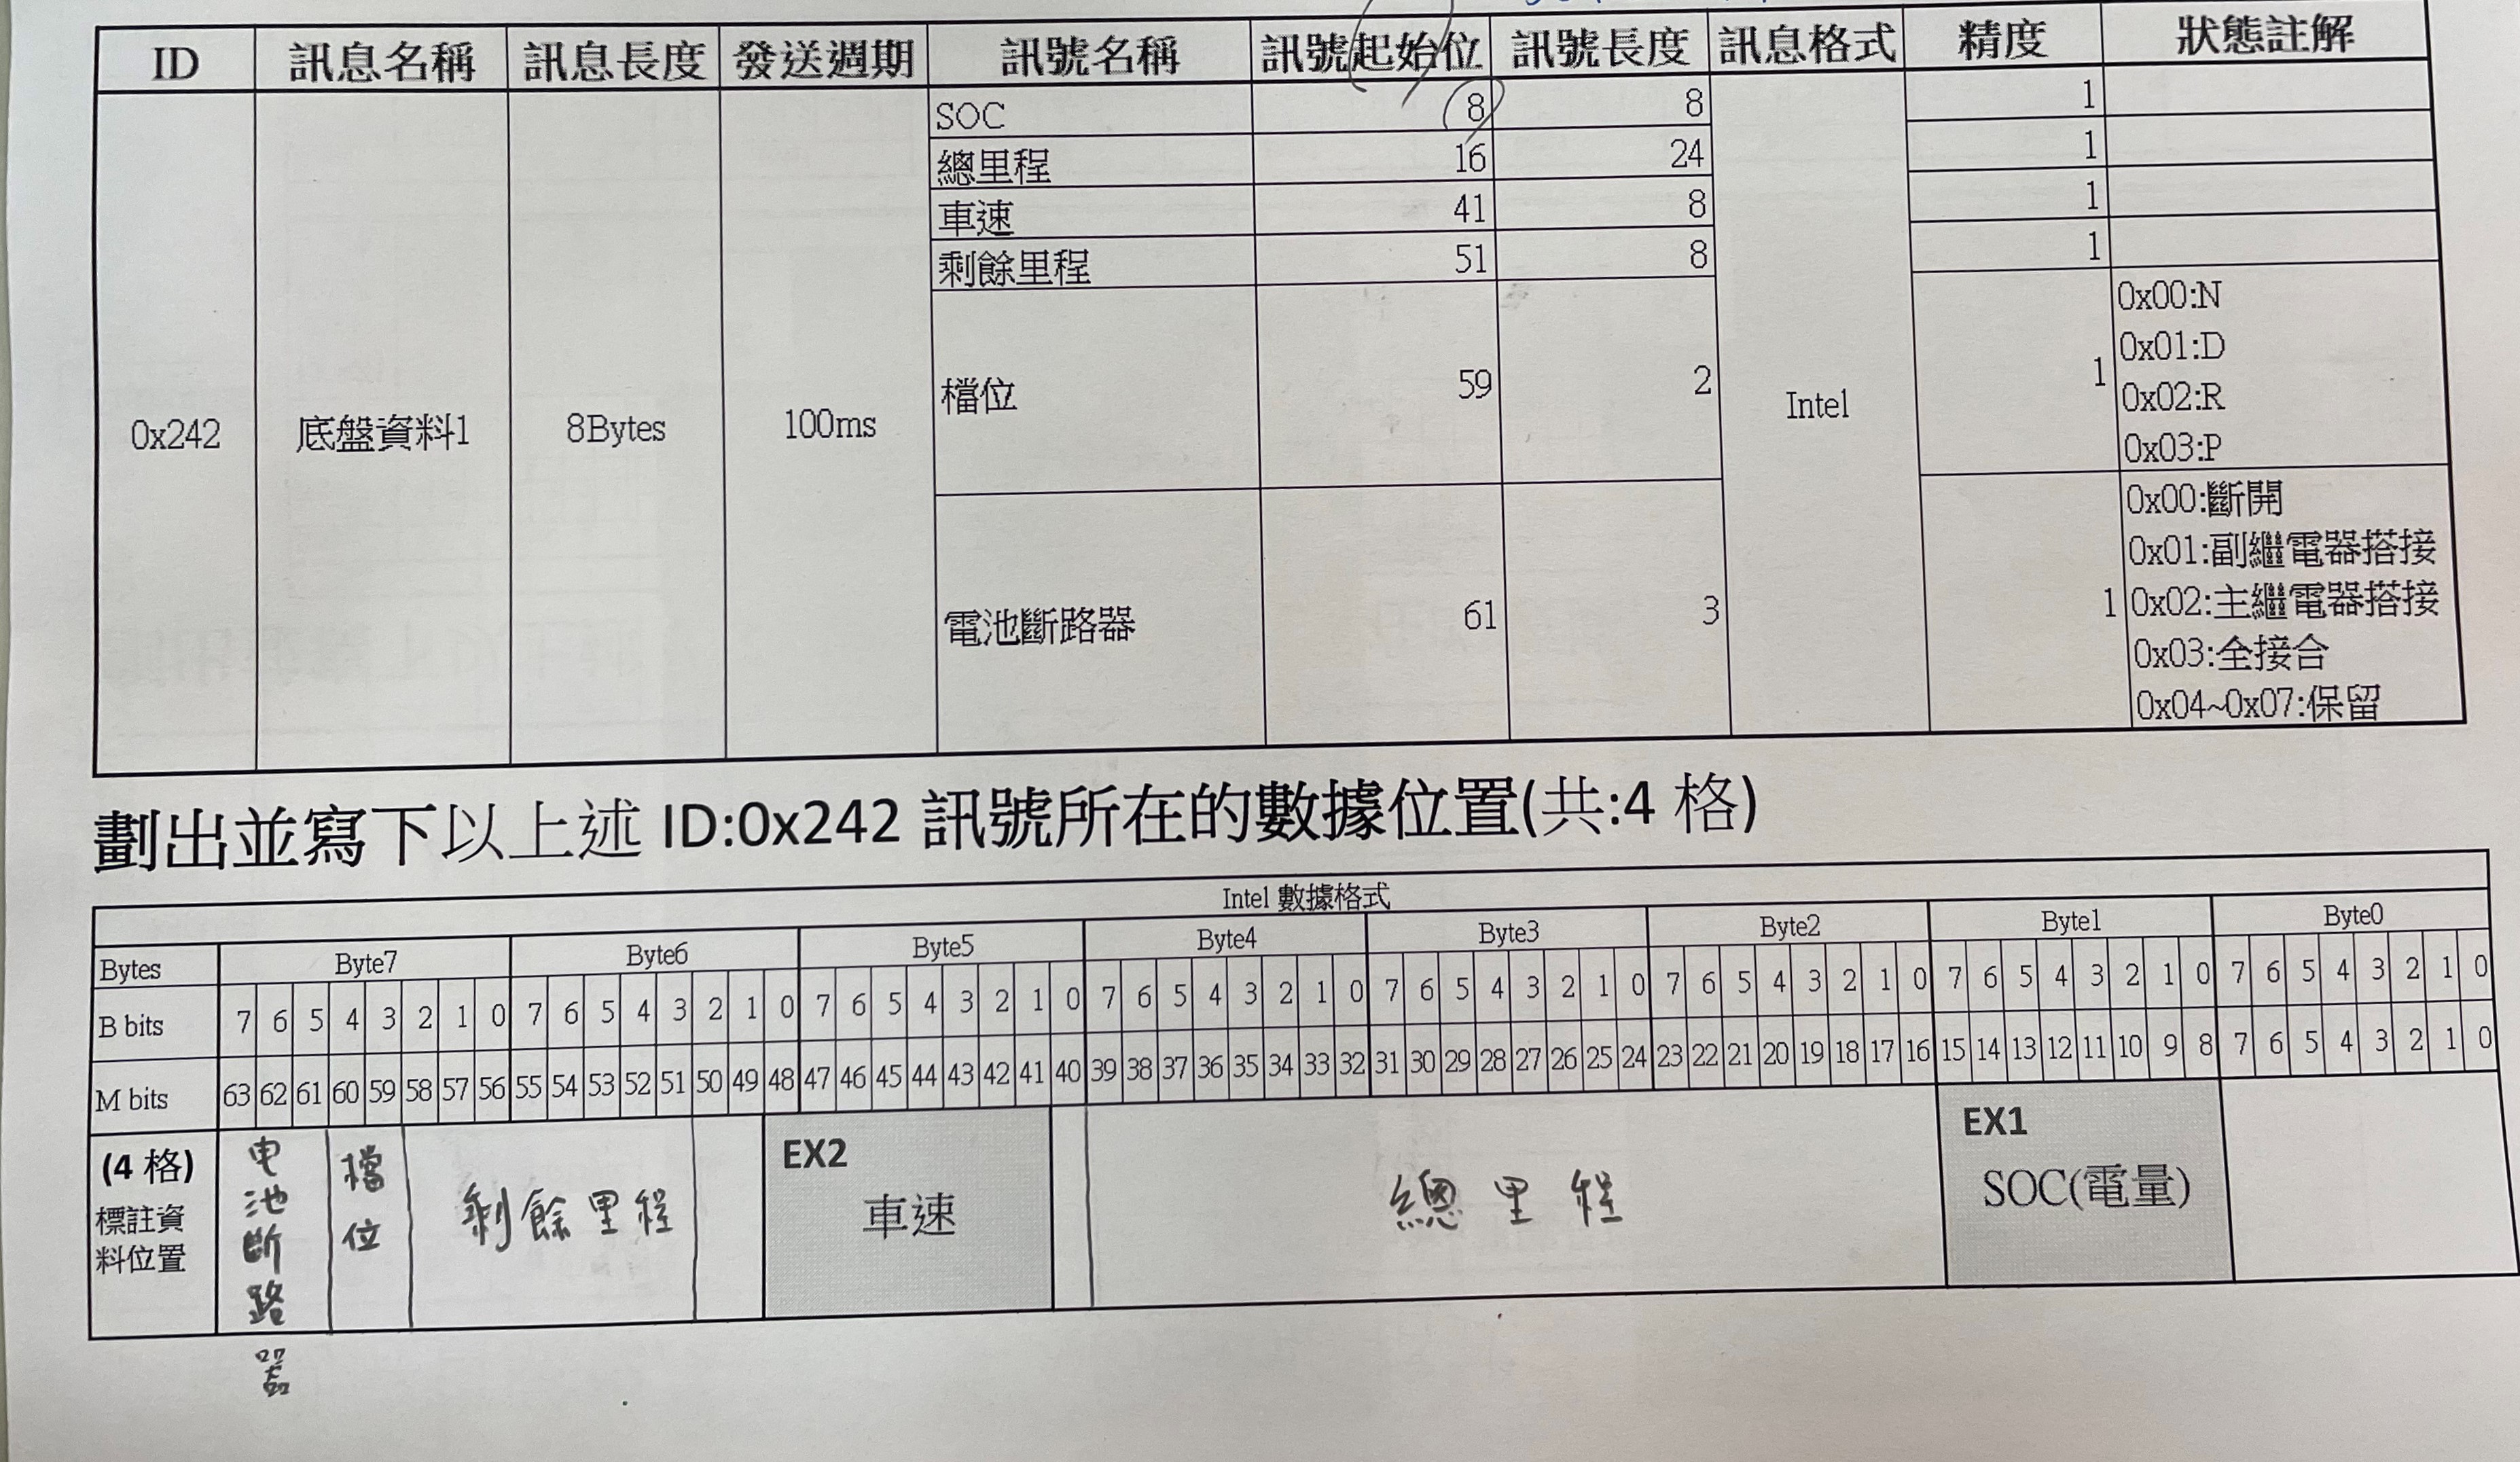 ID 訊息名稱 訊息長度 發送週期 訊號名稱 訊號起始位 訊號長度 訊息格式 精度 狀態註解
0x242 底盤資料1 8Bytes 100ms Intel
SOC 8 8 1
總里程 16 24 1
車速 41 8 1
剩餘里程 51 8 1
檔位 59 2 1
0x00:N
0x01:D
0x02:R
0x03:P
電池斷路器 61 3 1
0x00:斷開
0x01:副繼電器搭接
0x02:主繼電器搭接
0x03:全接合
0x04~0x07:保留
劃出並寫下以上述 ID:0x242 訊號所在的數據位置(共:4 格)
Intel 數據格式
Bytes Byte7 Byte6 Byte5 Byte4 Byte3 Byte2 Byte1 Byte0
B bits 7 6 5 4 3 2 1 0 7 6 5 4 3 2 1 0 7 6 5 4 3 2 1 0 7 6 5 4 3 2 1 0 7 6 5 4 3 2 1 0 7 6 5 4 3 2 1 0 7 6 5 4 3 2 1 0 7 6 5 4 3 2 1 0
M bits 63 62 61 60 59 58 57 56 55 54 53 52 51 50 49 48 47 46 45 44 43 42 41 40 39 38 37 36 35 34 33 32 31 30 29 28 27 26 25 24 23 22 21 20 19 18 17 16 15 14 13 12 11 10 9 8 7 6 5 4 3 2 1 0
(4 格)
標註資
料位置
电池斷路器
檔位
剩餘里程
EX2
車速
總里程
EX1
SOC(電量)